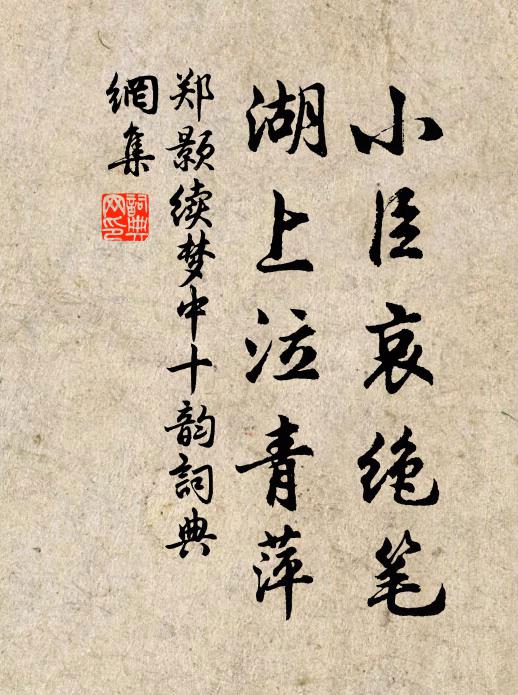 小臣哀绝笔
湖上泣青萍
郑颢续梦中十韵詞典
網集
詞典
网印